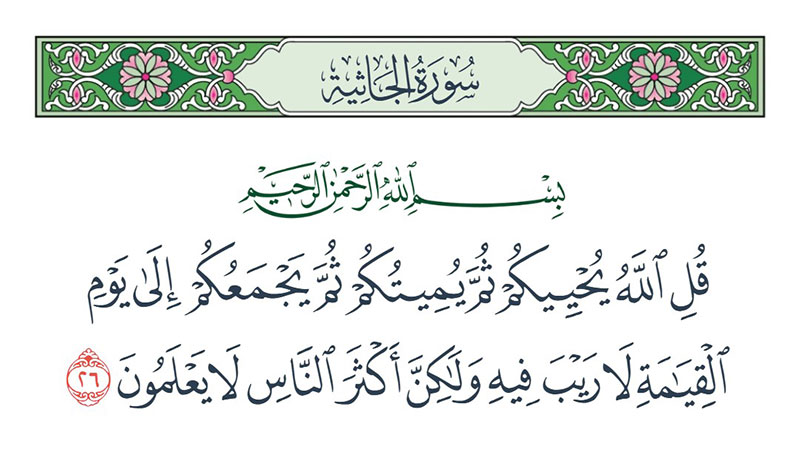 سُورَةُ الجَاثِيةِ
بِسْمِ ٱللَّهِ ٱلرَّحْمَٰنِ ٱلرَّحِيمِ
قُلِ ٱللَّهُ يُحْيِيكُمْ ثُمَّ يُمِيتُكُمْ ثُمَّ يَجْمَعُكُمْ إِلَىٰ يَوْمِ
ٱلْقِيَٰمَةِ لَا رَيْبَ فِيهِ وَلَٰكِنَّ أَكْثَرَ ٱلنَّاسِ لَا يَعْلَمُونَ ٢٦